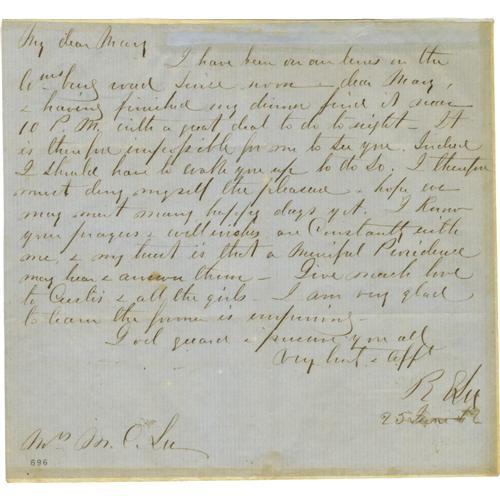 My dear Mary
I have been on our lines on the
Wmsburg road since noon - dear Mary,
& having finished my dinner find it near
10 P. M. with a great deal to do to night - It
is therefore impossible for me to see you. Indeed
I should have to wake you up to do so. I therefore
must deny myself the pleasure & hope we
may meet many happy days yet. I know
your prayers & well wishes are Constantly with
me, & my trust is that a Merciful Providence
may hear & answer them - Give much love
to Custis & all the girls - I am very glad
to learn the former is improving -
God guard & preserve you all
Very truly & affly
R E Lee
25 June 62
Mrs M. C. Lee
696